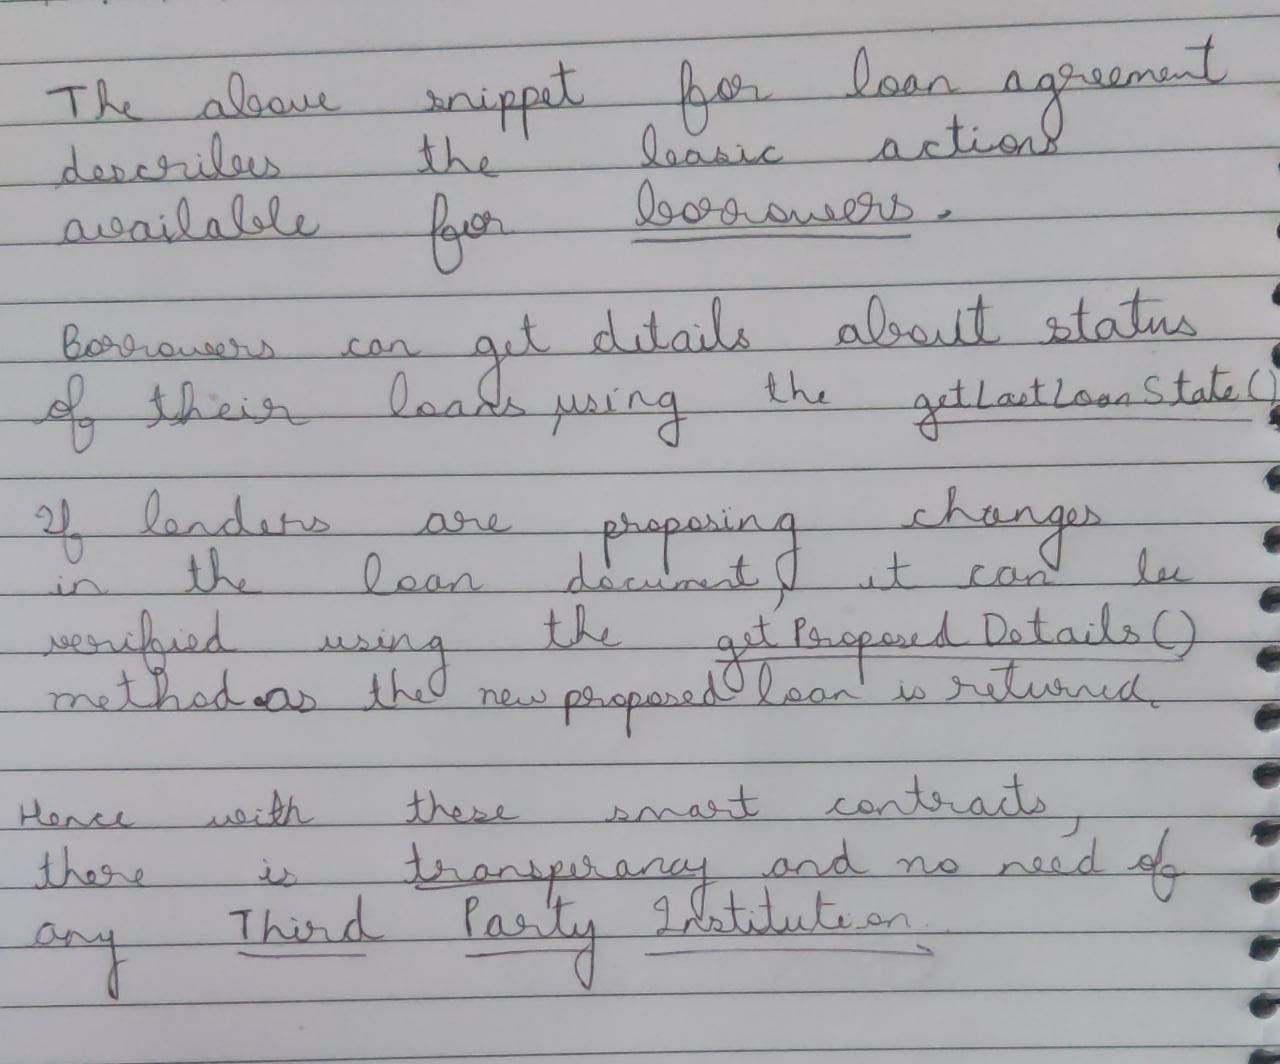 The above snippet for loan agreement
describes the basic actions
available for borrowers.
Borrowers can get details about status
of their loans, using the getLastLoanState()
If lenders are proposing changes
in the loan document, it can be
verified using the getProposedDetails()
method as the new proposed loan is returned.
Hence with these smart contracts,
there is transperancy and no need of
any Third Party Institution.